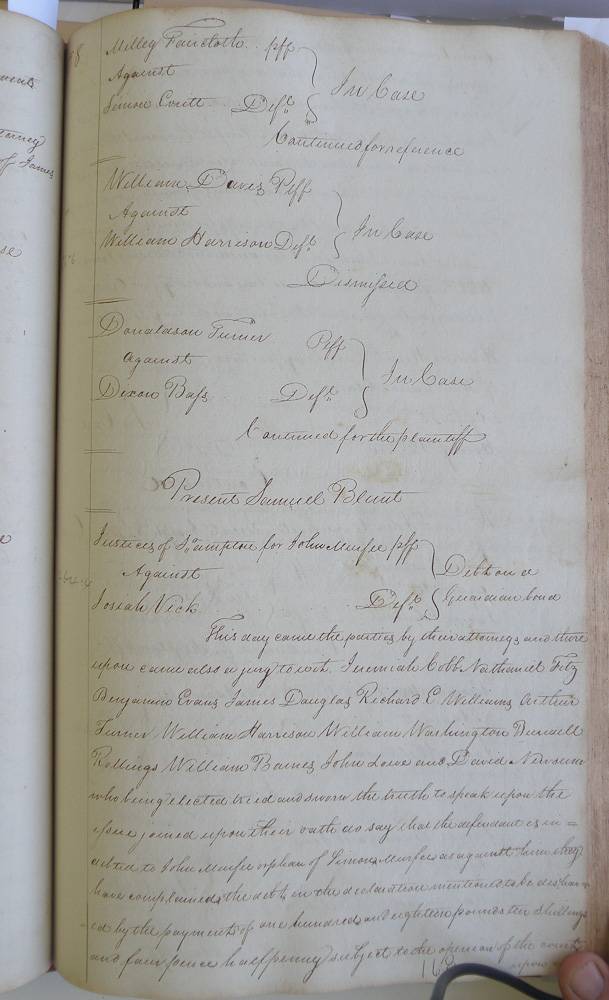 Milley Faircloth pff
Against
Simon Coutt Deft
In Case
Continued for reference
William Davis Plff
Against
William Harrison Deft
In Case
Dismissed
Donaldson Turner Plff
Against
Dixon Bass Deft
In Case
Continued for the plaintiff
Present Samuel Blunt
Justices of So ampton for John Murfee pff
Against
Josiah Vick Deft
Debt on a
Guardian bond
This day came the parties by their attorneys and there
upon came also a jury to wit. Jeremiah Cobb Nathaniel
Benjamin Evans James Douglas Richard E. Williams Arthur
Turner William Harrison William Washington Burwell
Rollings William Barnes John Lowe and David Newsum
who being elected tried and sworn the truth to speak upon the
issue joined upon their oath do say that the defendant is in =
debted to John Murfee orphan of Simon Murfee as against him they
have complained, the debt in the declaration mentioned to be dischar
ed by the payment of one hundred and eighteen pounds ten shillings
and four pence half penny subject to the opinion of the court
upon